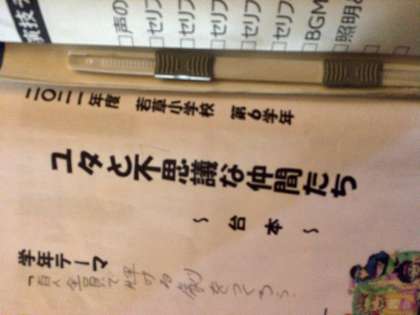 演技チ
□声の
□セリフ
□セリフ
□セリフ
□セリフ
□BGM
□照明
二〇二一年度 若草小学校 第6学年
ユタと不思議な仲間たち
~ 台本 ~
学年テーマ
全員で輝ける劇をつくろう